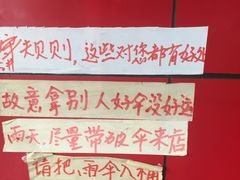 规则,这些对您都有好处
故意拿别人好伞没好运
雨天,尽量带破伞来店
请把,雨伞入不用